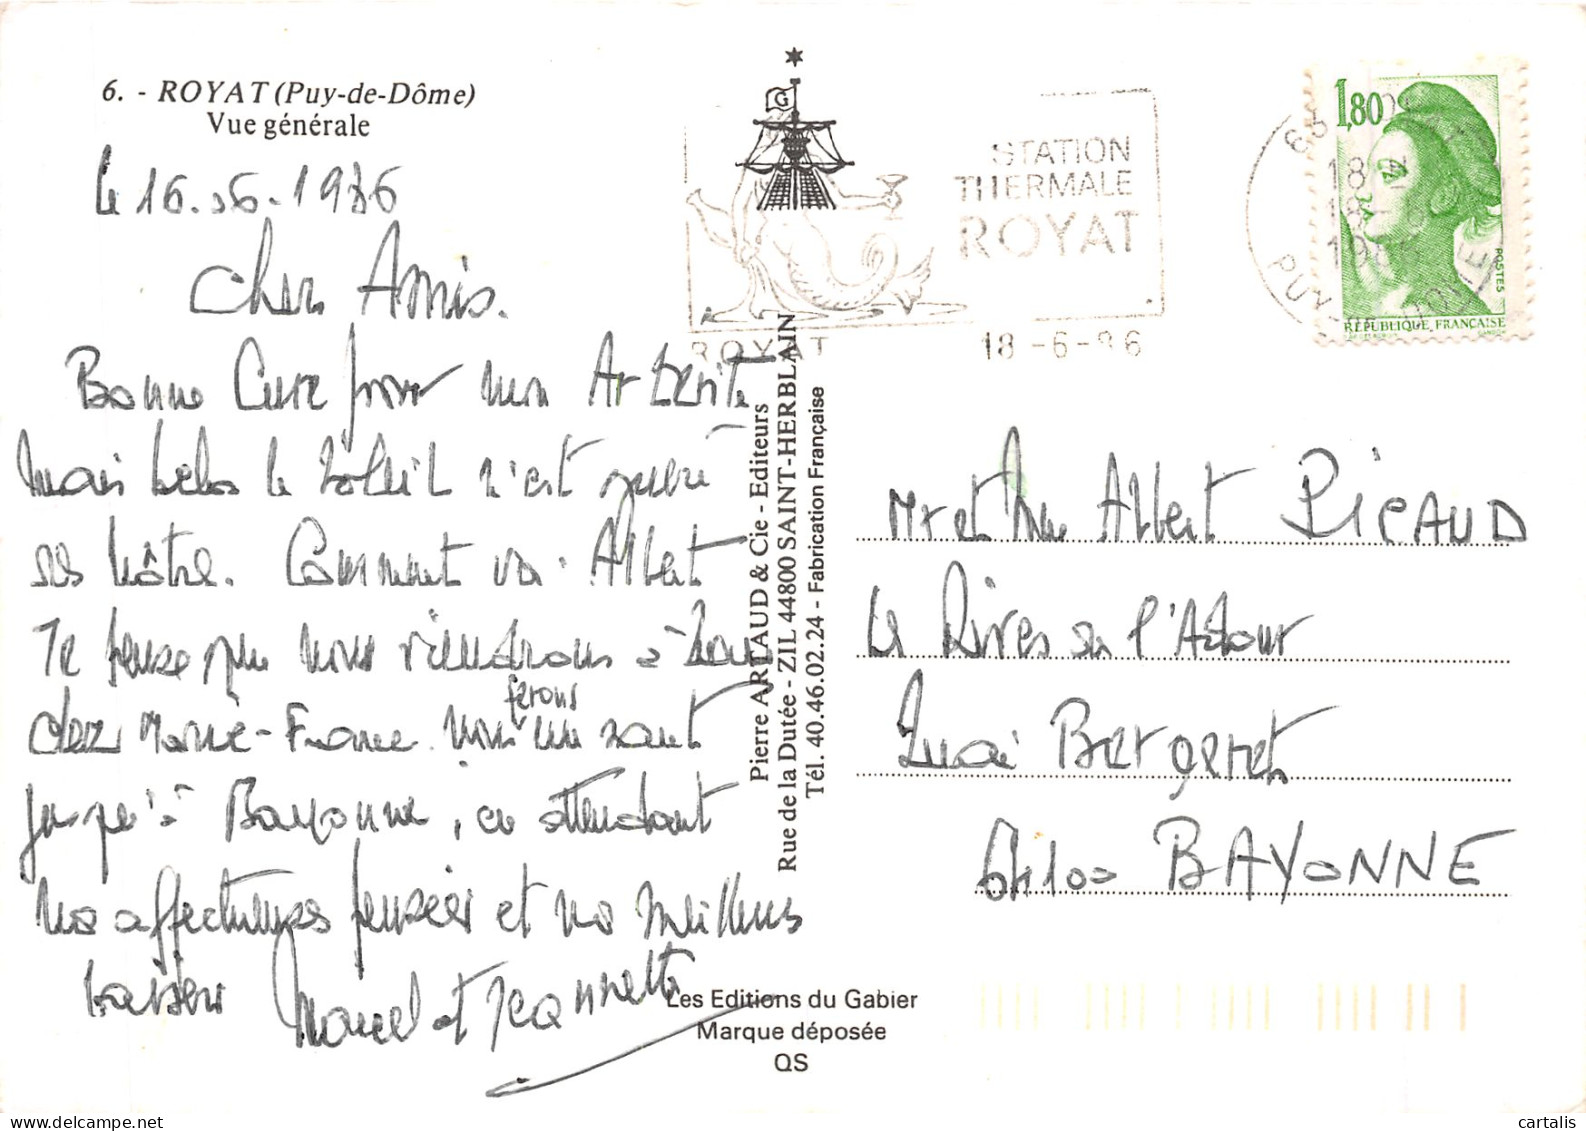 6. - ROYAT (Puy-de-Dôme)
Vue générale
le 16.06.1986
Chers Amis.
Bonne Cure pour mon Arterite
mais helas le soleil n'est guère
des nôtre. Comment va. Albert
Je pense que nous viendrons à
chez Marie-France. nous ferons un saut
jusqu'à Bayonne, en attendant
nos affectueuses pensées et nos meilleurs
baisers Marcel et Jeannette
G
STATION
THERMALE
ROYAT
ROYAT
18 -6-86
63
18 H
18 - 6
1986
PUY-DE-DOME
1,80
POSTES
RÉPUBLIQUE FRANÇAISE
Pierre ARTAUD & Cie - Editeurs
Rue de la Dutée - ZIL 44800 SAINT-HERBLAIN
Tél. 40.46.02.24 - Fabrication Française
Mr et Mme Albert PICAUD
Les Rives de l'Adour
Quai Bergeret
64100 BAYONNE
Les Editions du Gabier
Marque déposée
QS
cartalis